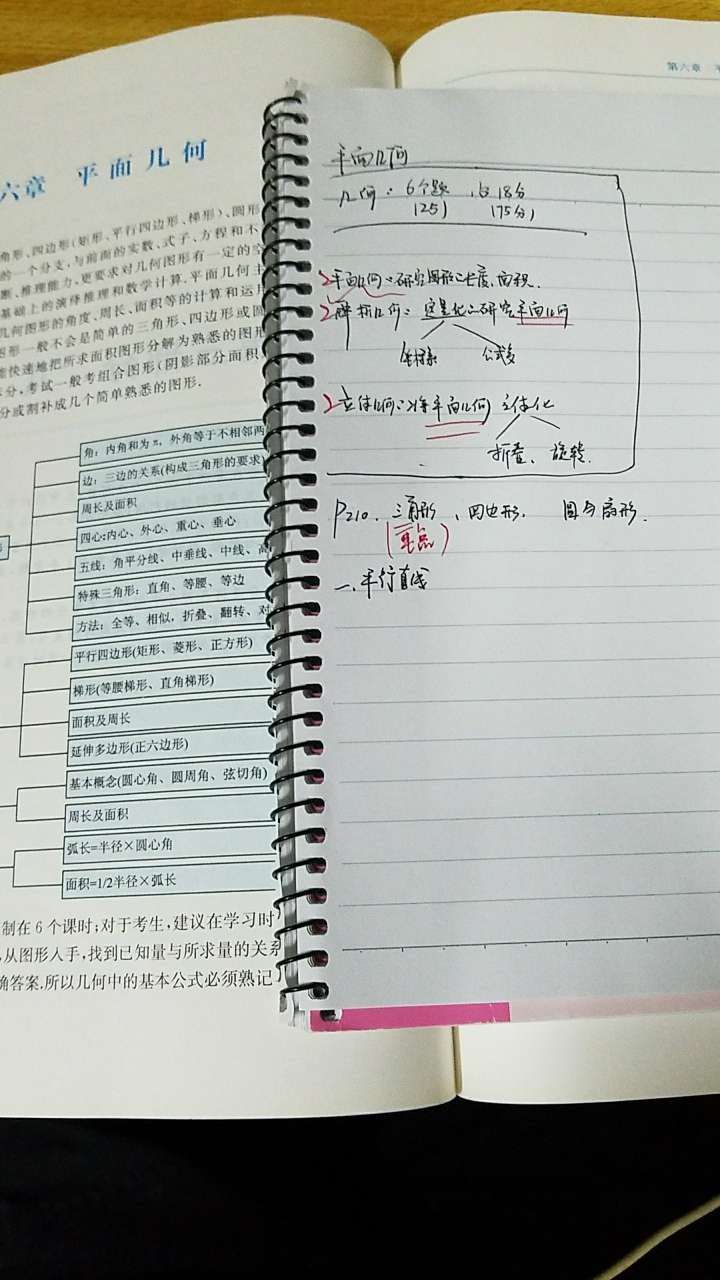 第六章
六章 平面几何
角形、四边形(矩形、平行四边形、梯形)、圆形
的一个分支,与前面的实数、式子、方程和不
断、推理能力,更要求对几何图形有一定的空
基础上的演绎推理和数学计算.平面几何主
几何图形的角度、周长、面积等的计算和运用
图形一般不会是简单的三角形、四边形或圆
能快速地把所求面积图形分解为熟悉的图形
分,考试一般考组合图形(阴影部分面积
分或割补成几个简单熟悉的图形.
角:内角和为π,外角等于不相邻两
边:三边的关系(构成三角形的要求)
周长及面积
四心:内心、外心、重心、垂心
五线:角平分线、中垂线、中线、高
特殊三角形:直角、等腰、等边
方法:全等、相似,折叠、翻转、对
平行四边形(矩形、菱形、正方形)
梯形(等腰梯形、直角梯形)
面积及周长
延伸多边形(正六边形)
基本概念(圆心角、圆周角、弦切角)
周长及面积
弧长=半径×圆心角
面积=1/2半径×弧长
制在6个课时;对于考生,建议在学习时
,从图形入手,找到已知量与所求量的关系
确答案.所以几何中的基本公式必须熟记
平面几何
几何:6个题,占18分
(25) (75分)
平面几何:研究图形之长度、面积.
解析几何: 研究平面几何
坐标系 公式多
立体几何:将平面几何立体化
折叠、旋转.
P210、三角形、四边形、圆与扇形.
(重点)
一、平行直线